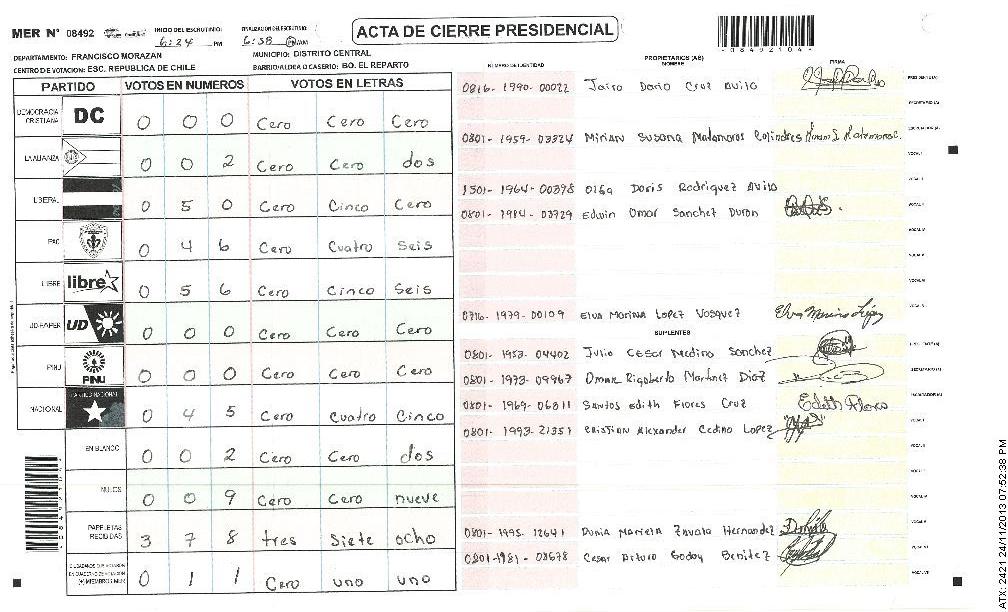 MER N° 08492
INICIO DEL ESCRUTINIO: 6:24 PM
FINALIZACION DEL ESCRUTINIO: 6:38 PM/AM
ACTA DE CIERRE PRESIDENCIAL
08492104
DEPARTAMENTO: FRANCISCO MORAZAN
MUNICIPIO: DISTRITO CENTRAL
CENTRO DE VOTACION: ESC. REPUBLICA DE CHILE
BARRIO/ALDEA O CASERIO: BO. EL REPARTO
PARTIDO VOTOS EN NUMEROS VOTOS EN LETRAS
DEMOCRACIA CRISTIANA DC 0 0 0 Cero Cero Cero
LA ALIANZA 0 0 2 Cero Cero dos
LIBERAL 0 5 0 Cero Cinco Cero
PAC 0 4 6 Cero Cuatro Seis
LIBRE libre 0 5 6 Cero Cinco Seis
UD-FAPER UD 0 0 0 Cero Cero Cero
PINU PINU 0 0 0 Cero Cero Cero
NACIONAL PARTIDO NACIONAL 0 4 5 Cero Cuatro Cinco
EN BLANCO 0 0 2 Cero Cero dos
NULOS 0 0 9 Cero Cero nueve
PAPELETAS RECIBIDAS 3 7 8 tres Siete ocho
CIUDADANOS QUE VOTARON EN CUADERNO DE VOTACION (+) MIEMBROS MER 0 1 1 Cero uno uno
NUMERO DE IDENTIDAD PROPIETARIOS (AS) NOMBRE FIRMA
0816-1990-00022 Jairo Dario Cruz Avila PRESIDENTE(A)
SECRETARIO(A)
0801-1959-03324 Mirian Susana Matamoros ESCRUTADOR(A)
VOCAL I
1501-1964-00398 Olga Doris Rodriquez Avila
0801-1984-03729 Edwin Omar Sanchez Duron
0716-1979-00109 Elva Marina Lopez Vasquez Elva Marina López
SUPLENTES
0801-1953-04402 Julio Cesar Medina Sanchez
0801-1973-09967 Omar Rigoberto Martinez Diaz
0801-1969-06811 Santos Edith Flores Cruz Edith Flores
0801-1993-21351 Cristian Alexander Cedino Lopez
0801-1995-12641 Dunia Mariela Zavala Hernandez
0801-1981-03678 Cesar Arturo Godoy Benitez
ATX: 2421 24/11/2013 07:52:38 PM